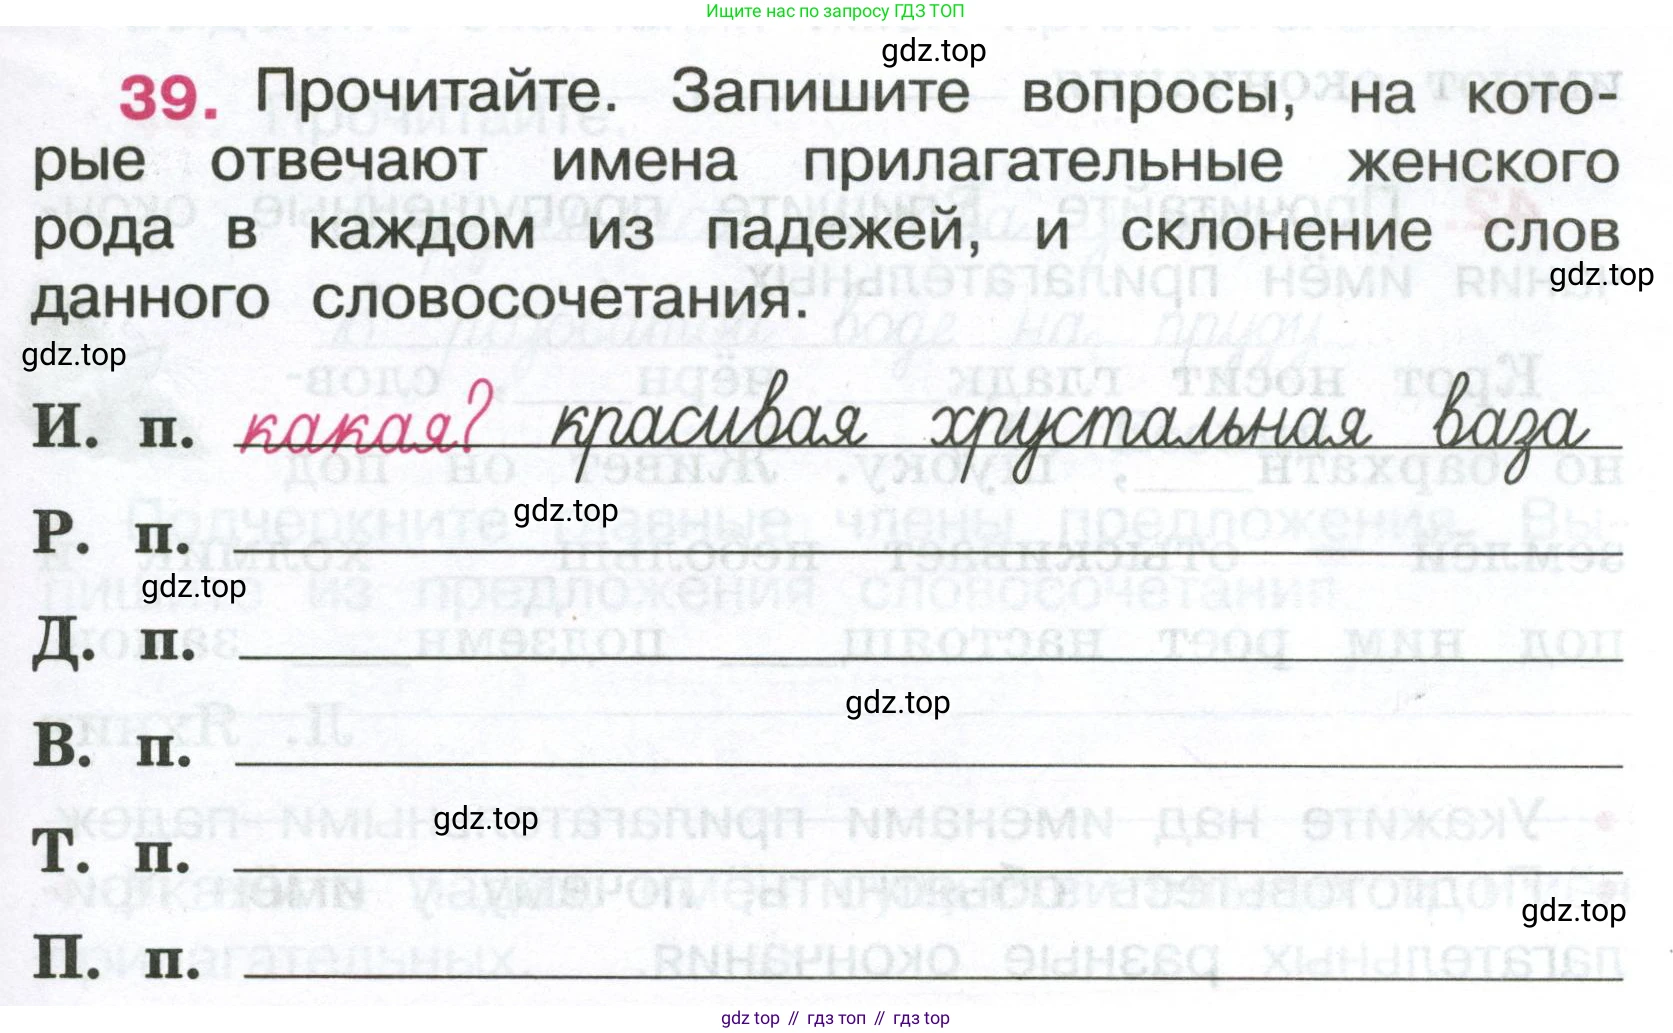 Ищите нас по запросу ГДЗ ТОП
gdz.top
39. Прочитайте. Запишите вопросы, на кото-
рые отвечают имена прилагательные женского
рода в каждом из падежей, и склонение слов
gdz.top
данного словосочетания.
gdz.top
И. п. какая? красивая хрустальная ваза
gdz.top
Р. п.
gdz.top
Д. п.
gdz.top
В. п.
gdz.top
Т. п.
gdz.top
П. п.
gdz top // гдз топ // гдз top